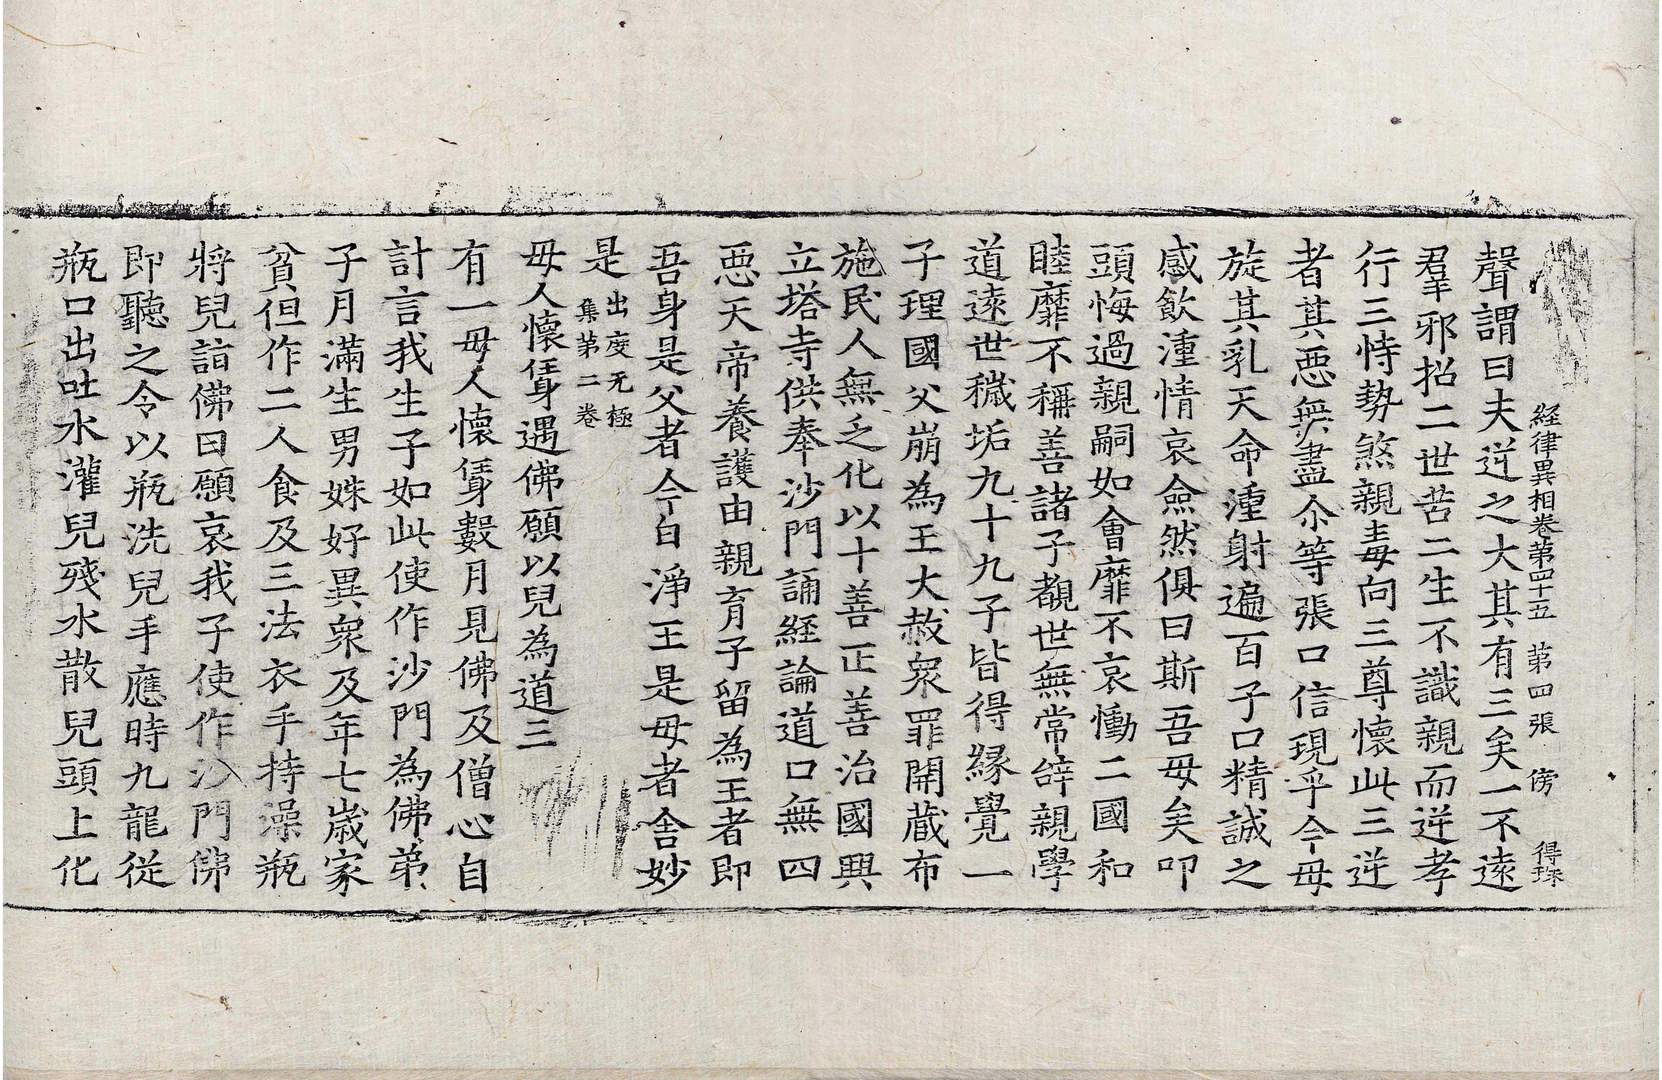 経律異相卷第四十五 第四張 傍 得珠
聲謂曰夫逆之大其有三矣一不遠
羣邪招二世苦二生不識親而逆孝
行三恃勢煞親毒向三尊懷此三逆
者其惡無盡尒等張口信現乎今母
旋其乳天命湩射遍百子口精誠之
感飲湩情哀僉然俱曰斯吾母矣叩
頭悔過親嗣如會靡不哀慟二國和
睦靡不稱善諸子覩世無常辝親學
道遠世穢垢九十九子皆得緣覺一
子理國父崩為王大赦衆罪開藏布
施民人無乏化以十善正善治國興
立塔寺供奉沙門誦経論道口無四
惡天帝養護由親育子留為王者即
吾身是父者今白淨王是母者舍妙
是 出度无極
集第二卷
母人懷㑗遇佛願以兒為道三
有一母人懷㑗數月見佛及僧心自
計言我生子如此使作沙門為佛弟
子月滿生男姝好異衆及年七歲家
貧但作二人食及三法衣手持澡瓶
將兒詣佛曰願哀我子使作沙門佛
即聽之令以瓶洗兒手應時九龍從
瓶口出吐水灌兒殘水散兒頭上化